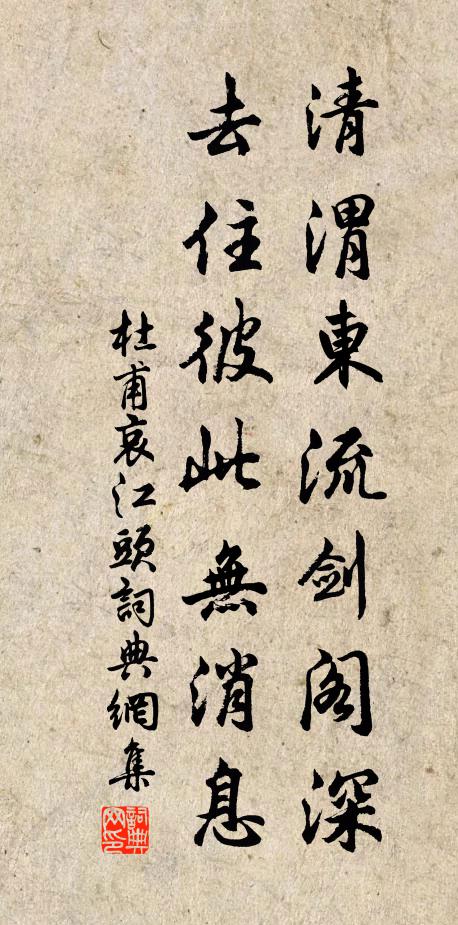 清渭東流劍閣深
去住彼此無消息
杜甫哀江頭詞典網集
詞典网印